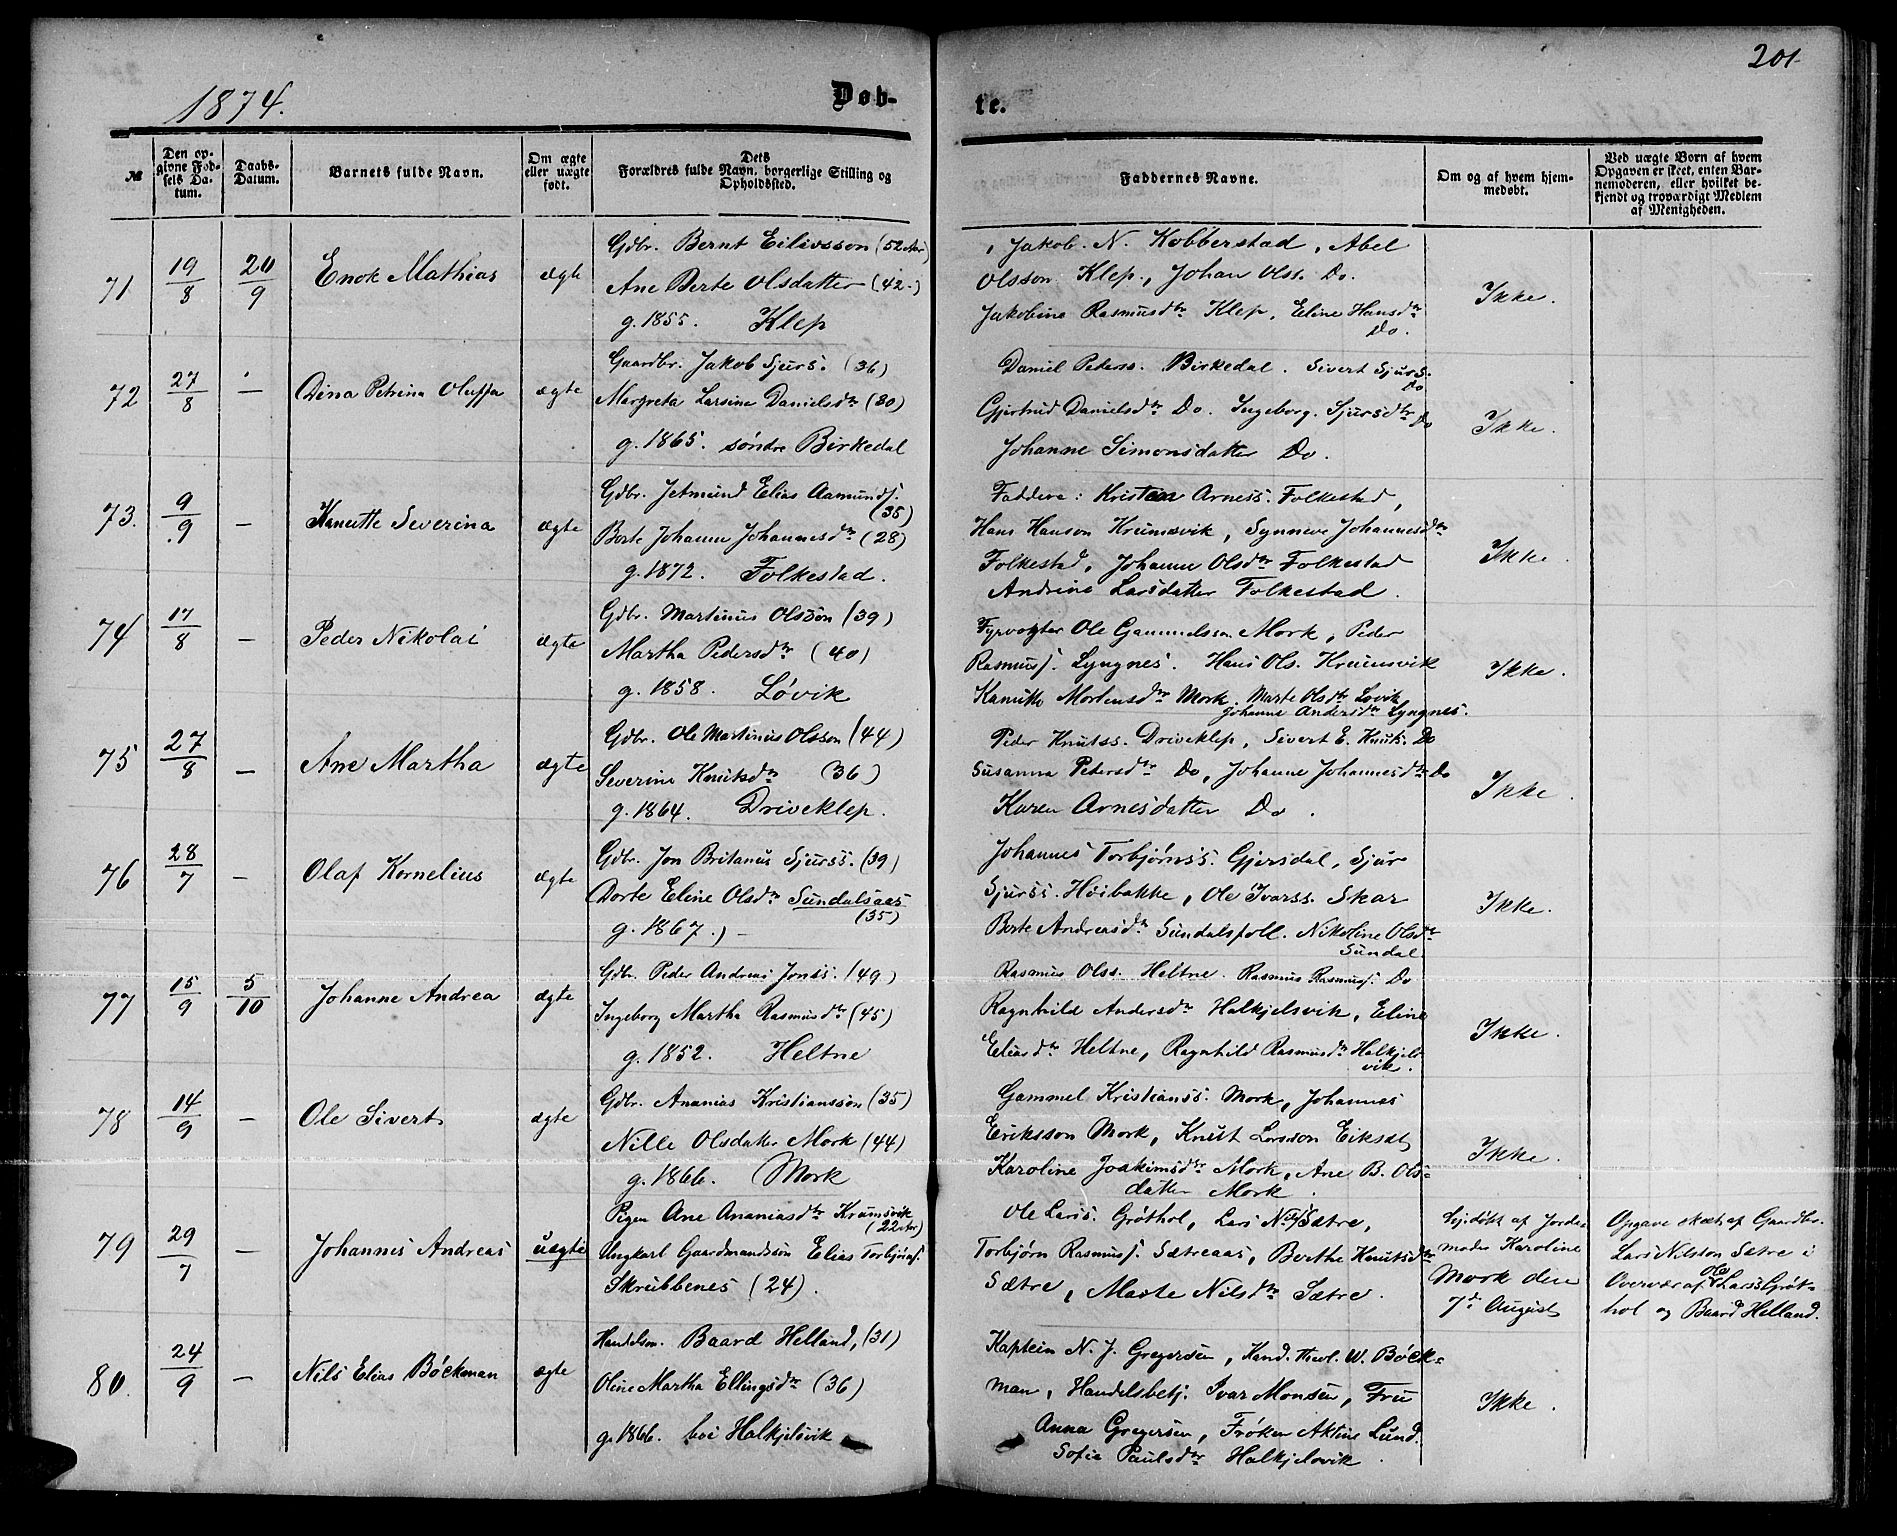 201
1874.
Døb-
te.
№
Den op-
givne Fød-
sels Da-
tum.
Daabs-
Datum.
Barnets fulde Navn.
Om ægte
eller uægte
født.
Dets
Forældres fulde Navn, borgerlige Stilling og
Opholdssted.
Faddernes Navne.
Om og af hvem hjem-
medøbt.
Ved uægte Børn af hvem
Opgaven er skeet, enten Bar-
nemoderen, eller hvilket be-
kjendt og troværdigt Medlem
af Menigheden.
71 19/8 20/9 Enok Mathias ægte
Gdbr. Bernt Eilivsson (52 Aar)
Ane Berte Olsdatter (42-)
g. 1855. Klep
Jakob N. Kobberstad, Abel
Olsson Klep, Johan Olss. Do.
Jakobine Rasmusdtr Klep, Eline Hansdtr
Do.
Ikke.
72 27/8 - Dina Petrina Oluffa ægte
Gaardbr. Jakob Sjurs. (36)
Margreta Larsine Danielsdtr (30)
g. 1865. søndre Birkedal
Daniel Peders. Birkedal. Sivert Sjurs.
Do
Gjertrud Danielsdtr Do. Ingeborg Sjursdtr Do
Johanne Simonsdatter Do.
Ikke.
73. 9/9 - Kanutte Severina ægte
Gdbr. Jetmund Elias Aamunds.
(35)
Berte Johanne Johannesdtr (28)
g. 1872. Folkestad.
Faddere: Kristen Arness. Folkestad,
Hans Hanson Krumsvik, Synneve Johannesdtr
Folkestad, Johanne Olsdtr Folkestad
Andrine Larsdatter Folkestad.
Ikke.
74 17/8 - Peder Nikolai ægte
Gdbr. Martinus Olsson (39)
Martha Pedersdtr (40)
g. 1858. Løvik
Fyrvogter Ole Gammelsson Mork, Peder
Rasmuss. Lyngnes. Hans Ols. Krumsvik
Kanutte Mortensdtr Mork. Marte Olsdtr Løvik
Johanne Andersdtr Lyngnes.
Ikke.
75 27/8 - Ane Martha ægte
Gdbr. Ole Martinus Olsson (44)
Severine Knutsdtr (36)
g. 1864. Driveklep.
Peder Knutss. Driveklep, Sivert E. Knuts. Do
Susanna Petersdtr Do, Johanne Johannesdtr Do
Karen Arnesdatter Do.
Ikke.
76 28/7 - Olaf Kornelius ægte
Gdbr. Jon Britanus Sjurss. (39)
Dorte Eline Olsdtr Sundalsaas
(35)
g. 1867.) -
Johannes Torbjørnss. Gjersdal, Sjur
Sjurss. Høibakke, Ole Ivarss. Skar
Berte Andreasdtr Sundalspoll. Nikoline Olsdtr
Sundal
Ikke.
77 15/9 5/10 Johanne Andrea ægte
Gdbr. Peder Andreas Jonss. (49)
Ingeborg Martha Rasmusdtr (45)
g. 1852. Heltne
Rasmus Olss. Heltne. Rasmus Rasmuss. Do
Ragnhild Andersdtr Halkjelsvik, Eline
Eliasdtr Heltne, Ragnhild Rasmusdtr Halkjels
vik.
Ikke.
78 14/9 - Ole Sivert ægte
Gdbr. Ananias Kristiansson (35)
Nille Olsdatter Mork (44)
g. 1866. Mork
Gammel Kristianss. Mork, Johannes
Eriksson Mork, Knut Larsson Eikset
Karoline Joakimsdtr Mork, Ane B. Ols-
datter Mork.
Ikke.
79 29/7 - Johannes Andreas uægte
Pigen Ane Ananiasdtr Krumsvik
(22 Aar)
Ungkarl Gaardmandssøn Elias Torbjørns.
Skrubbenes (24).
Ole Larss. Grøthol, Lars Nilss. Sætre,
Torbjørn Rasmuss. Sætreaas, Berthe Knutsdtr
Sætre, Marte Nilsdtr Sætre.
Hjdøbt af Jorde-
moder Karoline
Mork den
7de August
Opgave skeet af Gaardbr.
Lars Nilsson Sætre i
Overvær af Ole Larss Grøt-
hol og Baard Helland.
80. 24/9 - Nils Elias Bøckman ægte
Handelsm. Baard Helland, (31)
Oline Martha Ellingsdtr (36)
g. 1866. boi Halkjelsvik
Kaptein N. J. Gregersen, Kand. theol. W. Bøck-
man, Handelsbetj. Ivar Monsen, Fru
Anna Gregersen, Frøken Aktine Lund.
Sofie Paulsdtr Halkjelsvik.
Ikke.